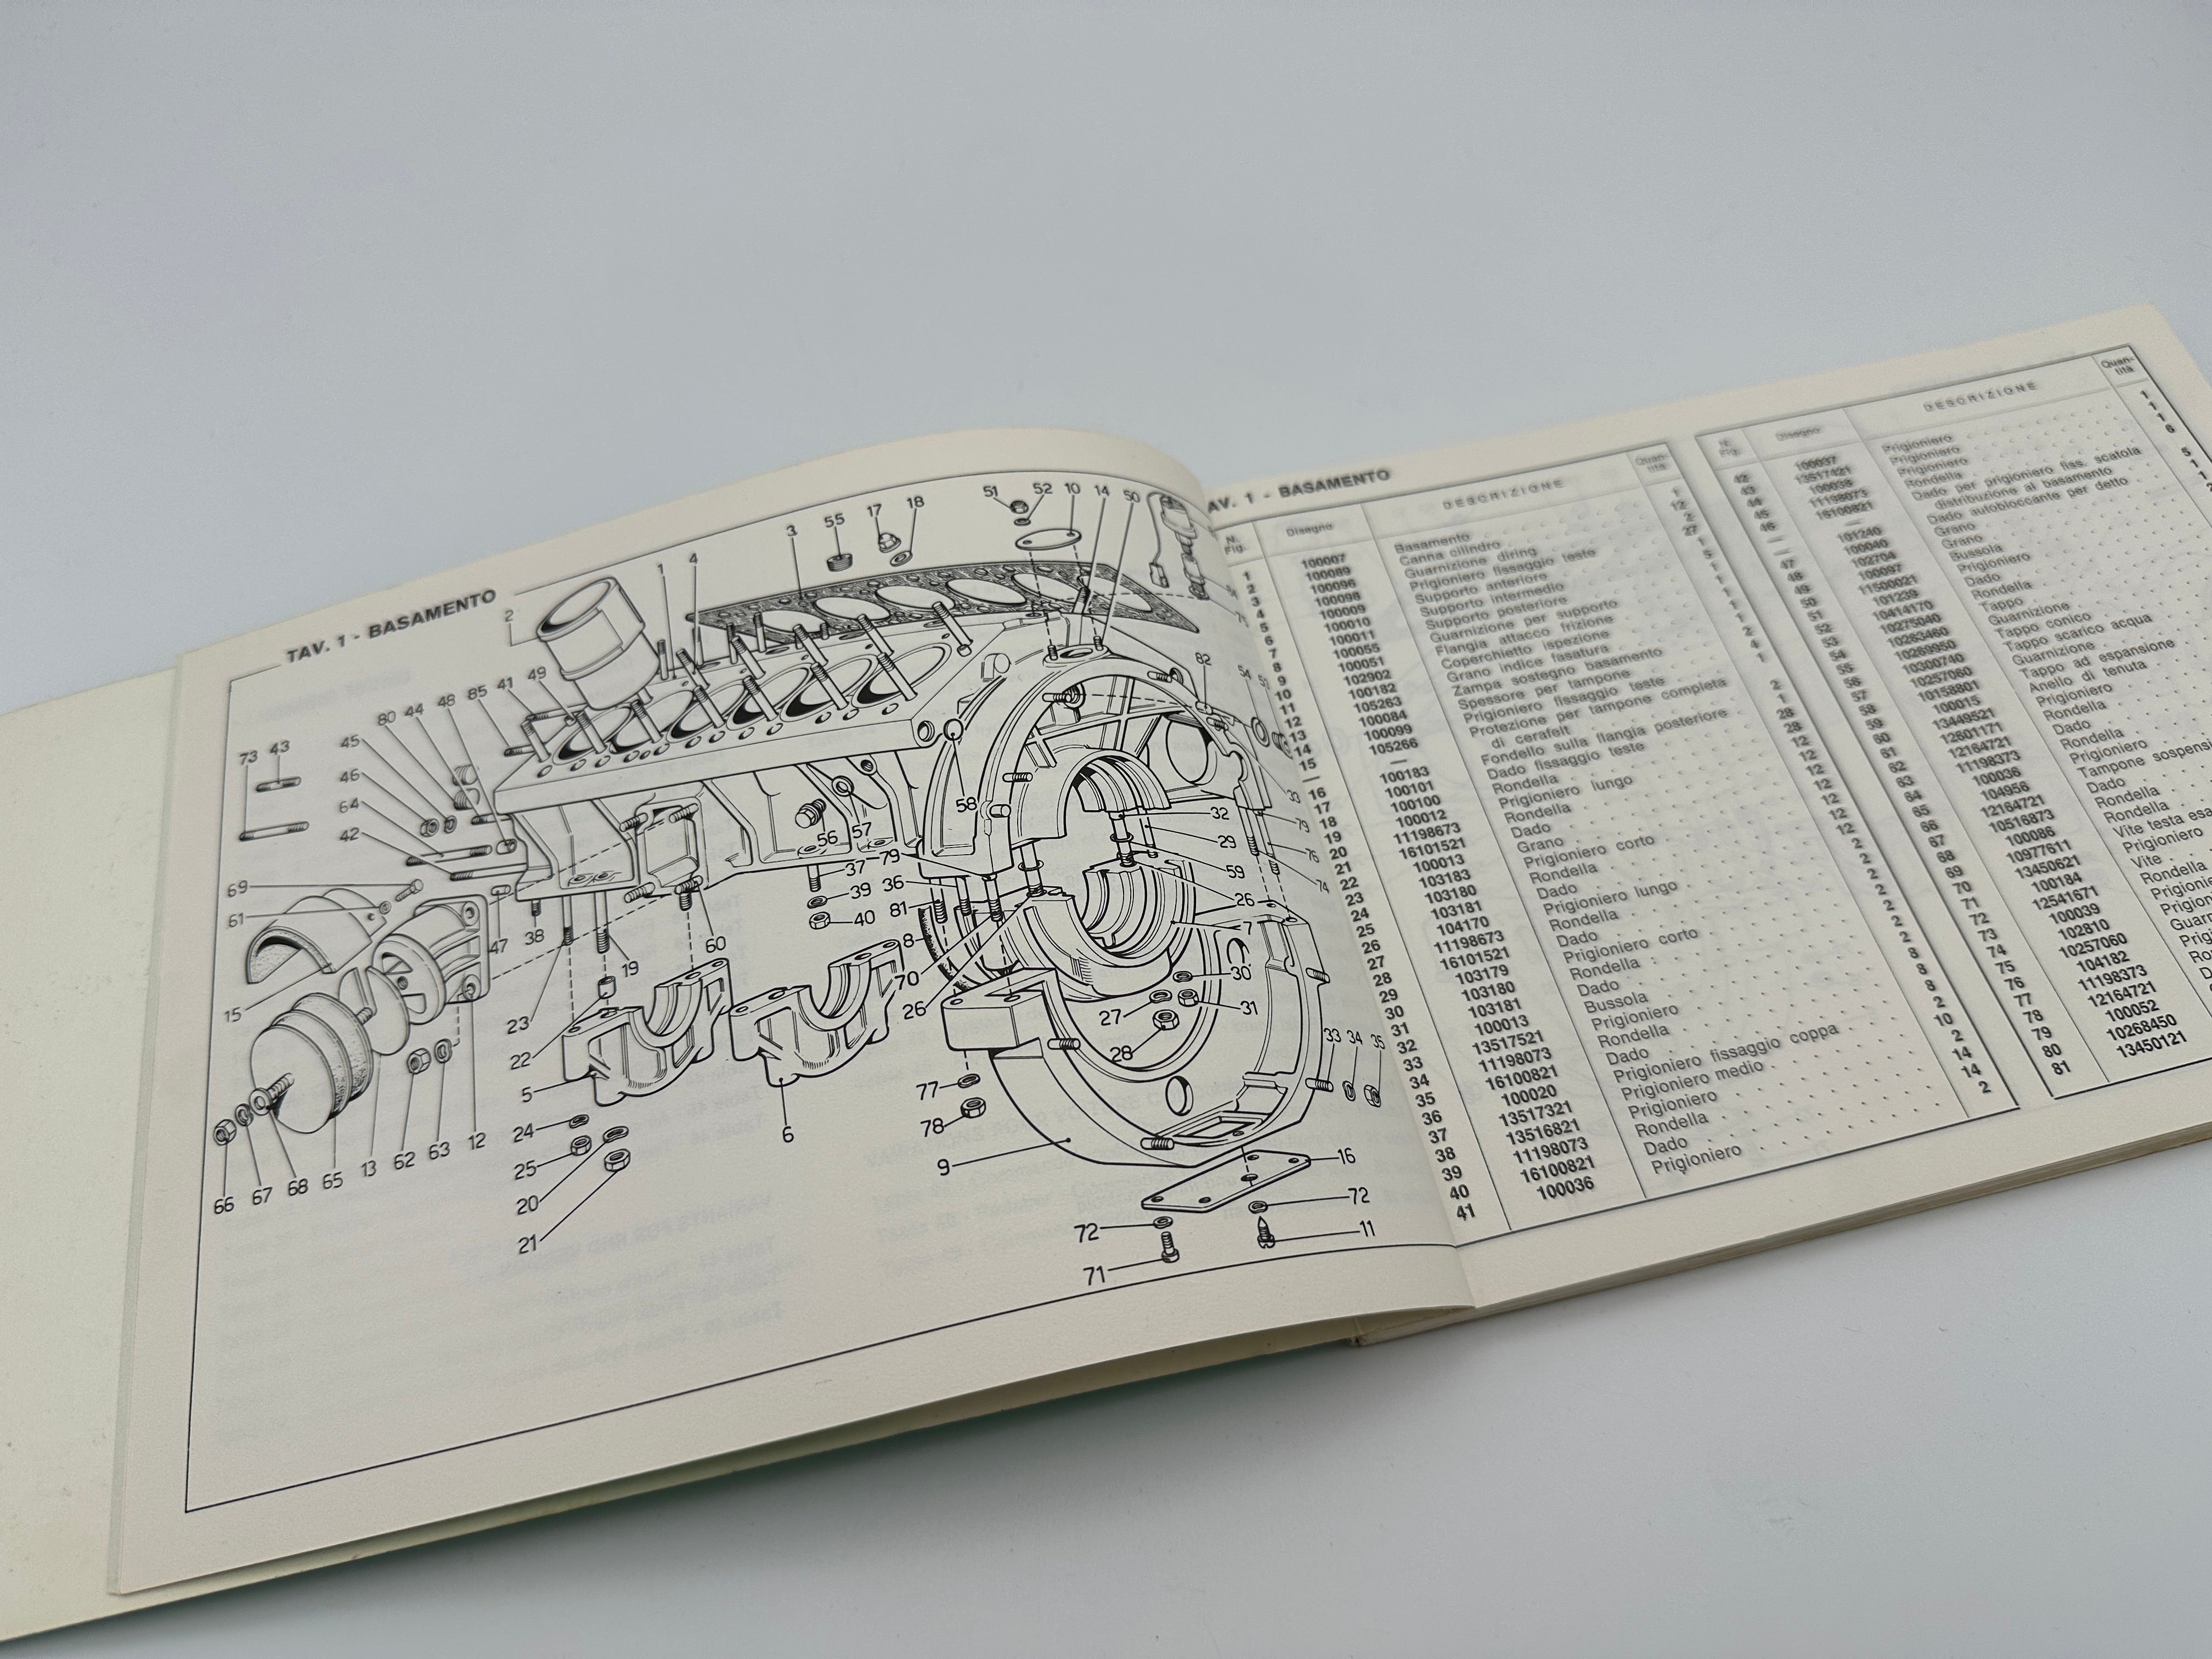 TAV. 1 - BASAMENTO
51 52 10 14 50
3 55 17 18
1 4
2
80 44 48 85 41 49
73 43 45
46
64
42
82
54
58
33
56 57
32
79
29
76
37 79
59
74
36
39
26
81
40
7
69
61
47 38
60
8
19
70
30
15
23
26
27 31
22
28
33 34 35
5
77
24
6
78
12
25
66 67 68 65 13 62 63
9
16
20
72
21
72
11
71
AV. 1 - BASAMENTO
N. Fig. Disegno DESCRIZIONE Quan- tità
1 100007 Basamento 1
2 100089 Canna cilindro 12
3 100096 Guarnizione diring 2
4 100098 Prigioniero fissaggio teste 27
5 100009 Supporto anteriore 1
6 100010 Supporto intermedio 5
7 100011 Supporto posteriore 1
8 100055 Guarnizione per supporto 1
9 100051 Flangia attacco frizione 1
10 102902 Coperchietto ispezione 1
11 100182 Grano indice fasatura 1
12 105263 Zampa sostegno basamento 2
13 100084 Spessore per tampone 4
14 100099 Prigioniero fissaggio teste 1
15 105266 Protezione per tampone completa
— — di cerafelt 2
16 100183 Fondello sulla flangia posteriore 1
17 100101 Dado fissaggio teste 28
18 100100 Rondella 28
19 100012 Prigioniero lungo 12
20 11198673 Rondella 12
21 16101521 Dado 12
22 100013 Grano 12
23 103183 Prigioniero corto 12
24 103180 Rondella 12
25 103181 Dado 12
26 104170 Prigioniero lungo 2
27 11198673 Rondella 2
28 16101521 Dado 2
29 103179 Prigioniero corto 2
30 103180 Rondella 2
31 103181 Dado 2
32 100013 Bussola 2
33 13517521 Prigioniero 8
34 11198073 Rondella 8
35 16100821 Dado 8
36 100020 Prigioniero fissaggio coppa 2
37 13517321 Prigioniero medio 10
38 13516821 Prigioniero 2
39 11198073 Rondella 14
40 16100821 Dado 14
41 100036 Prigioniero 2
N. Fig. Disegno DESCRIZIONE Quan- tità
42 100037 Prigioniero 1
43 13517421 Prigioniero 1
44 100038 Prigioniero 1
45 11198073 Rondella 6
46 16100821 Dado per prigioniero fiss. scatola
— — distribuzione al basamento 5
— 101240 Dado autobloccante per detto 1
47 100040 Grano 1
48 102704 Grano
49 100097 Bussola
50 11500021 Prigioniero
51 101239 Dado
52 10414170 Rondella
53 10275040 Tappo
54 10263460 Guarnizione
55 10269950 Tappo conico
56 10300740 Tappo scarico acqua
57 10257060 Guarnizione
58 10158801 Tappo ad espansione
59 100015 Anello di tenuta
60 13449521 Prigioniero
61 12601171 Rondella
62 12164721 Dado
63 11198373 Rondella
64 100036 Prigioniero
65 104956 Tampone sospensi
66 12164721 Dado
67 10516873 Rondella
68 100086 Rondella
69 10977611 Vite testa esa
70 13450621 Prigioniero
71 100184 Vite
72 12541671 Rondella
73 100039 Prigioni
74 102810 Prigion
75 10257060 Guar
76 104182 Prigi
77 11198373 Ro
78 12164721 D
79 100052
80 10268450
81 13450121